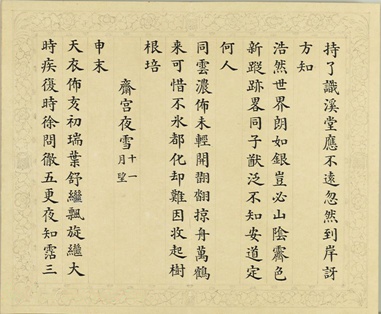 持了識溪堂應不遠忽然到岸訝
方知
浩然世界朗如銀豈必山陰霽色
新蹤跡畧同子猷泛不知安道定
何人
同雲濃佈未輕開翩翩掠舟萬鶴
来可惜不氷都化却難因收起樹
根培
齋宮夜雪 十一月望
申末
天衣佈亥初瑞葉舒繼飄旋繼大
時疾復時徐問徹五更夜知霑三